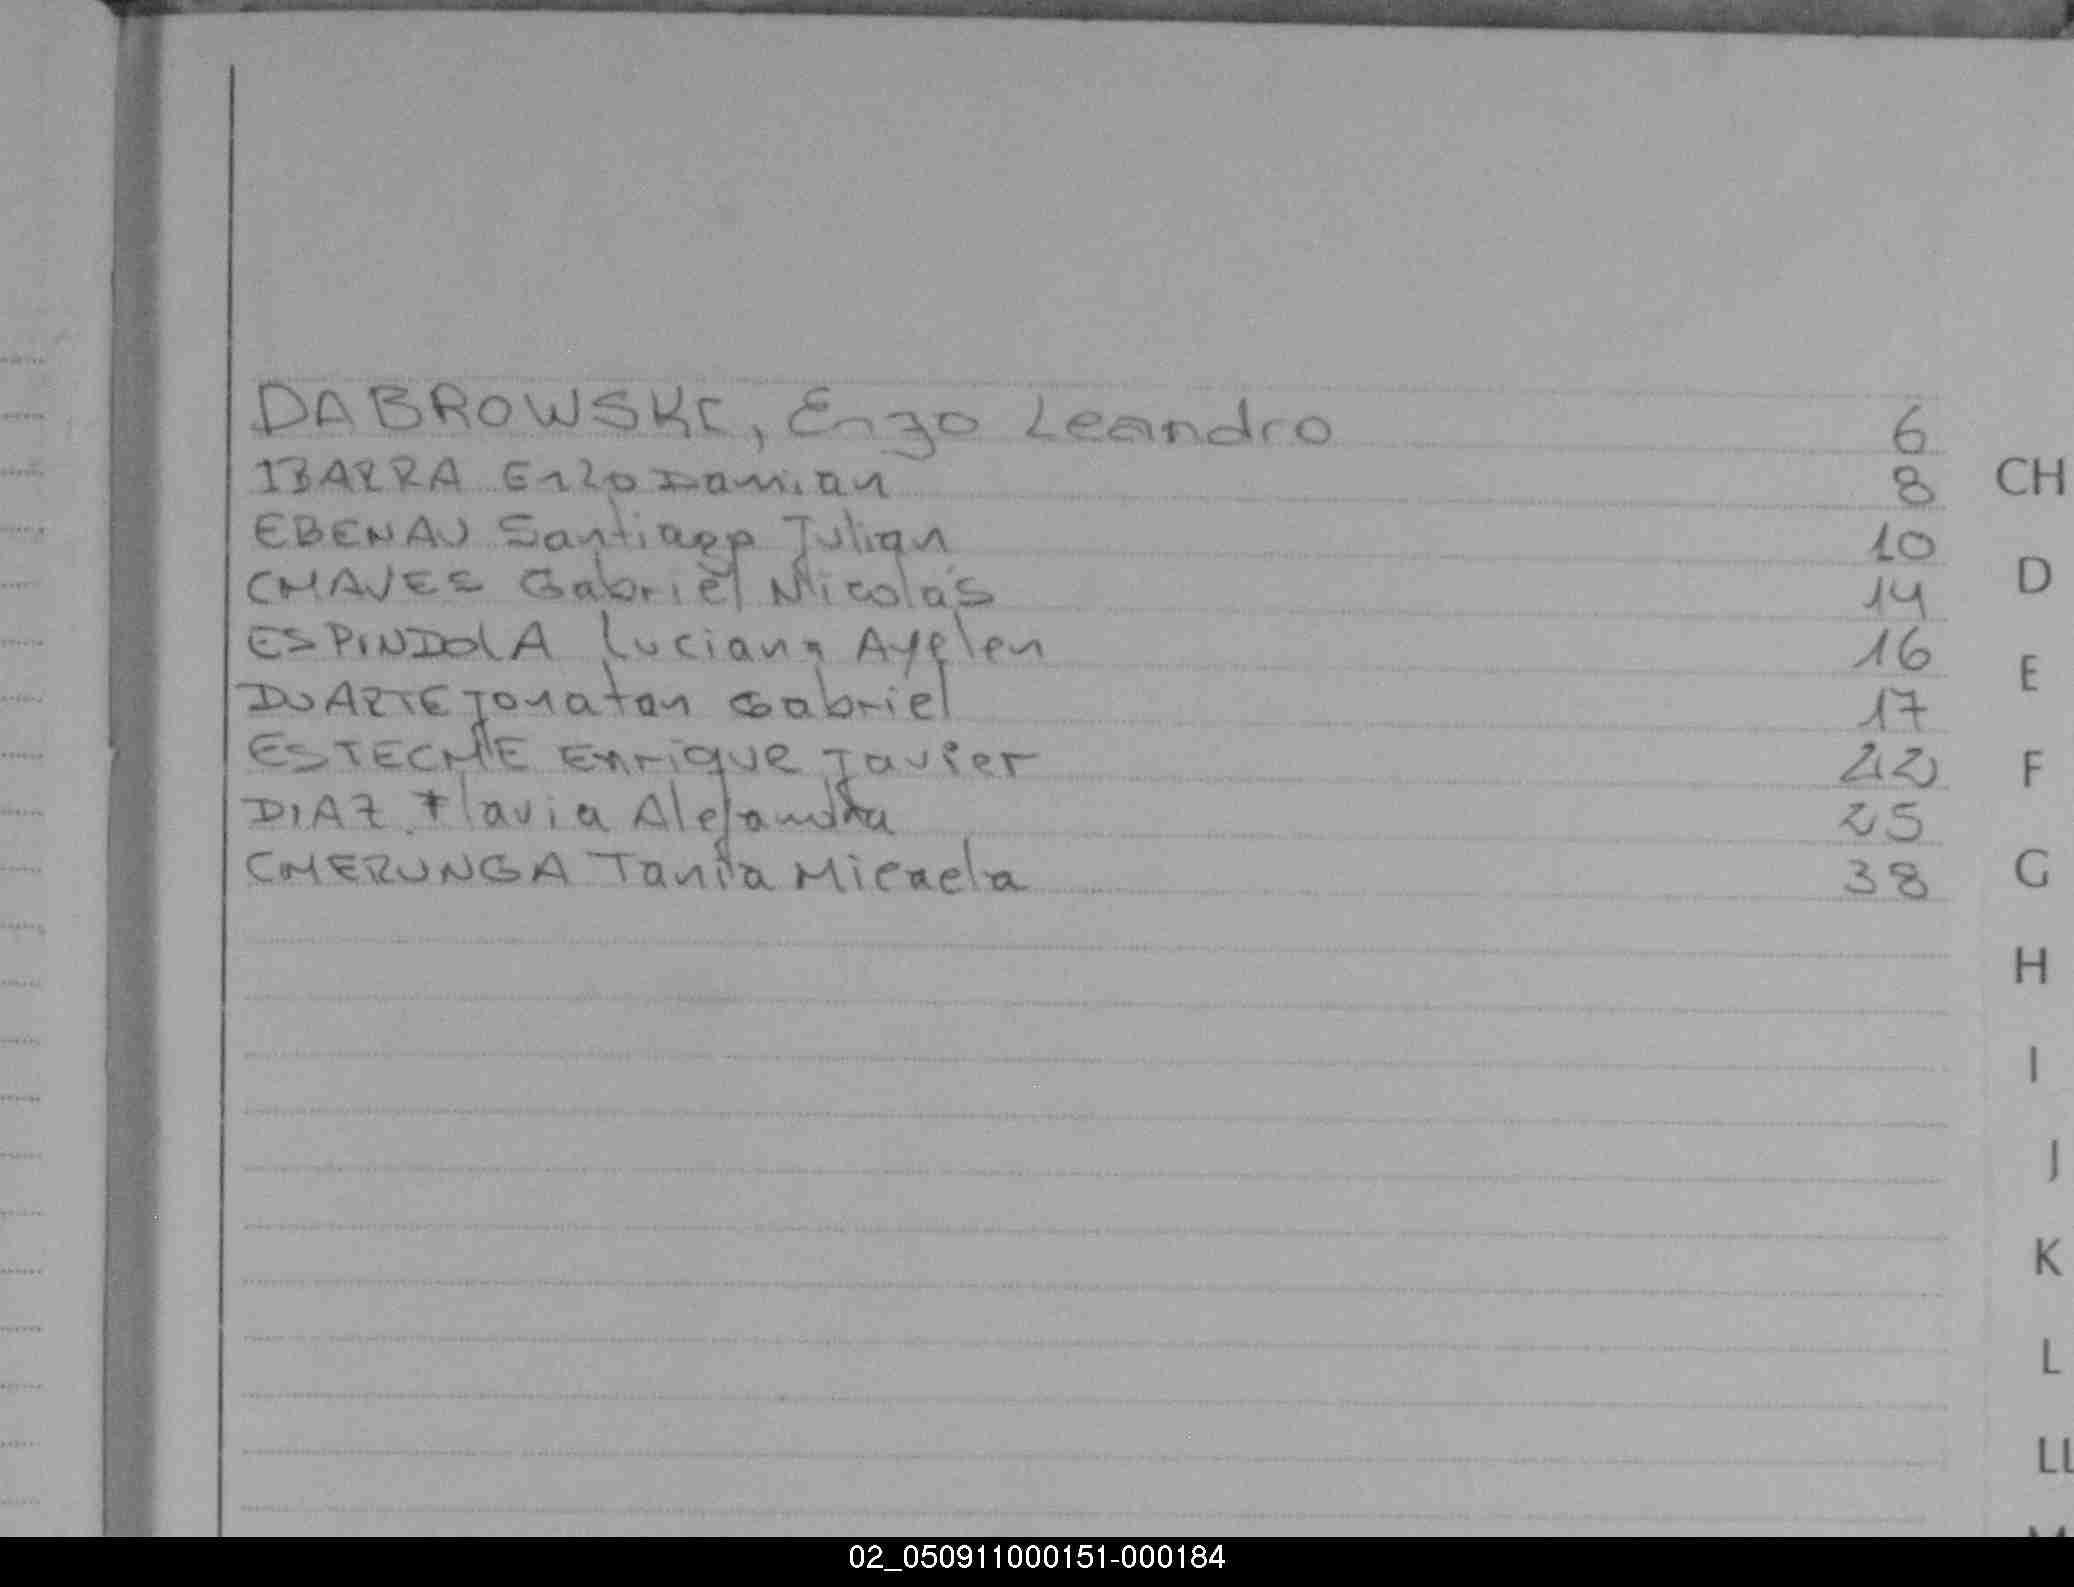 DABROWSKI, Enzo Leandro 6
IBARRA Enzo Damian 8
EBENAU Santiago Julian 10
CHAVES Gabriel Nicolás 14
ESPINDOLA Luciana Ayelen 16
DUARTE Jonatan Gabriel 17
ESTECHE Enrique Javier 22
DIAZ Flavia Alejandra 25
CHERUNGA Tania Micaela 38
CH
D
E
F
G
H
I
J
K
L
LL
M
02_050911000151-000184